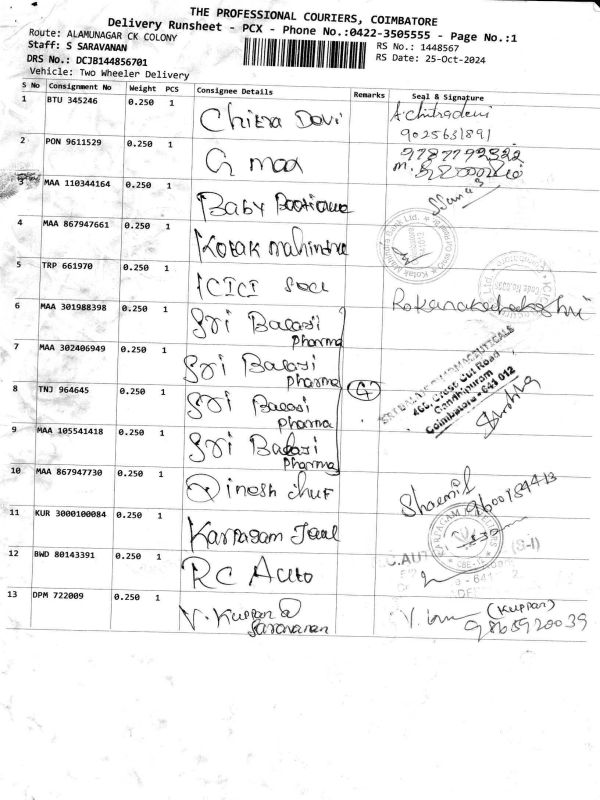 THE PROFESSIONAL COURIERS, COIMBATORE
Delivery Runsheet - PCX - Phone No.:0422-3505555 - Page No.:1
Route: ALAMUNAGAR CK COLONY
Staff: S SARAVANAN
RS No.: 1448567
DRS No.: DCJB144856701
RS Date: 25-Oct-2024
Vehicle: Two Wheeler Delivery
S No Consignment No Weight PCS Consignee Details Remarks Seal & Signature
1 BTU 345246 0.250 1 Chitra Devi A.chitradevi
9025631891
2 PON 9611529 0.250 1 G maa
3 MAA 110344164 0.250 1 Baby
4 MAA 867947661 0.250 1 Kotak Mahindra
Kotak Mahindra Bank Ltd.
5 TRP 661970 0.250 1 ICICI
6 MAA 301988398 0.250 1 Sri Balaji
Pharma
7 MAA 302406949 0.250 1 Sri Balaji
Pharma
8 TNJ 964645 0.250 1 Sri Balaji
Pharma
4
9 MAA 105541418 0.250 1 Sri Balaji
Pharma
Cross Cut Road
Gandhipuram
Coimbatore - 641 012
10 MAA 867947730 0.250 1 Dinesh
11 KUR 3000100084 0.250 1 Karpagam Jewel
12 BWD 80143391 0.250 1 RC Auto
13 DPM 722009 0.250 1 V. Kuppan @
Saravanan
V. (Kuppan)
9865920039